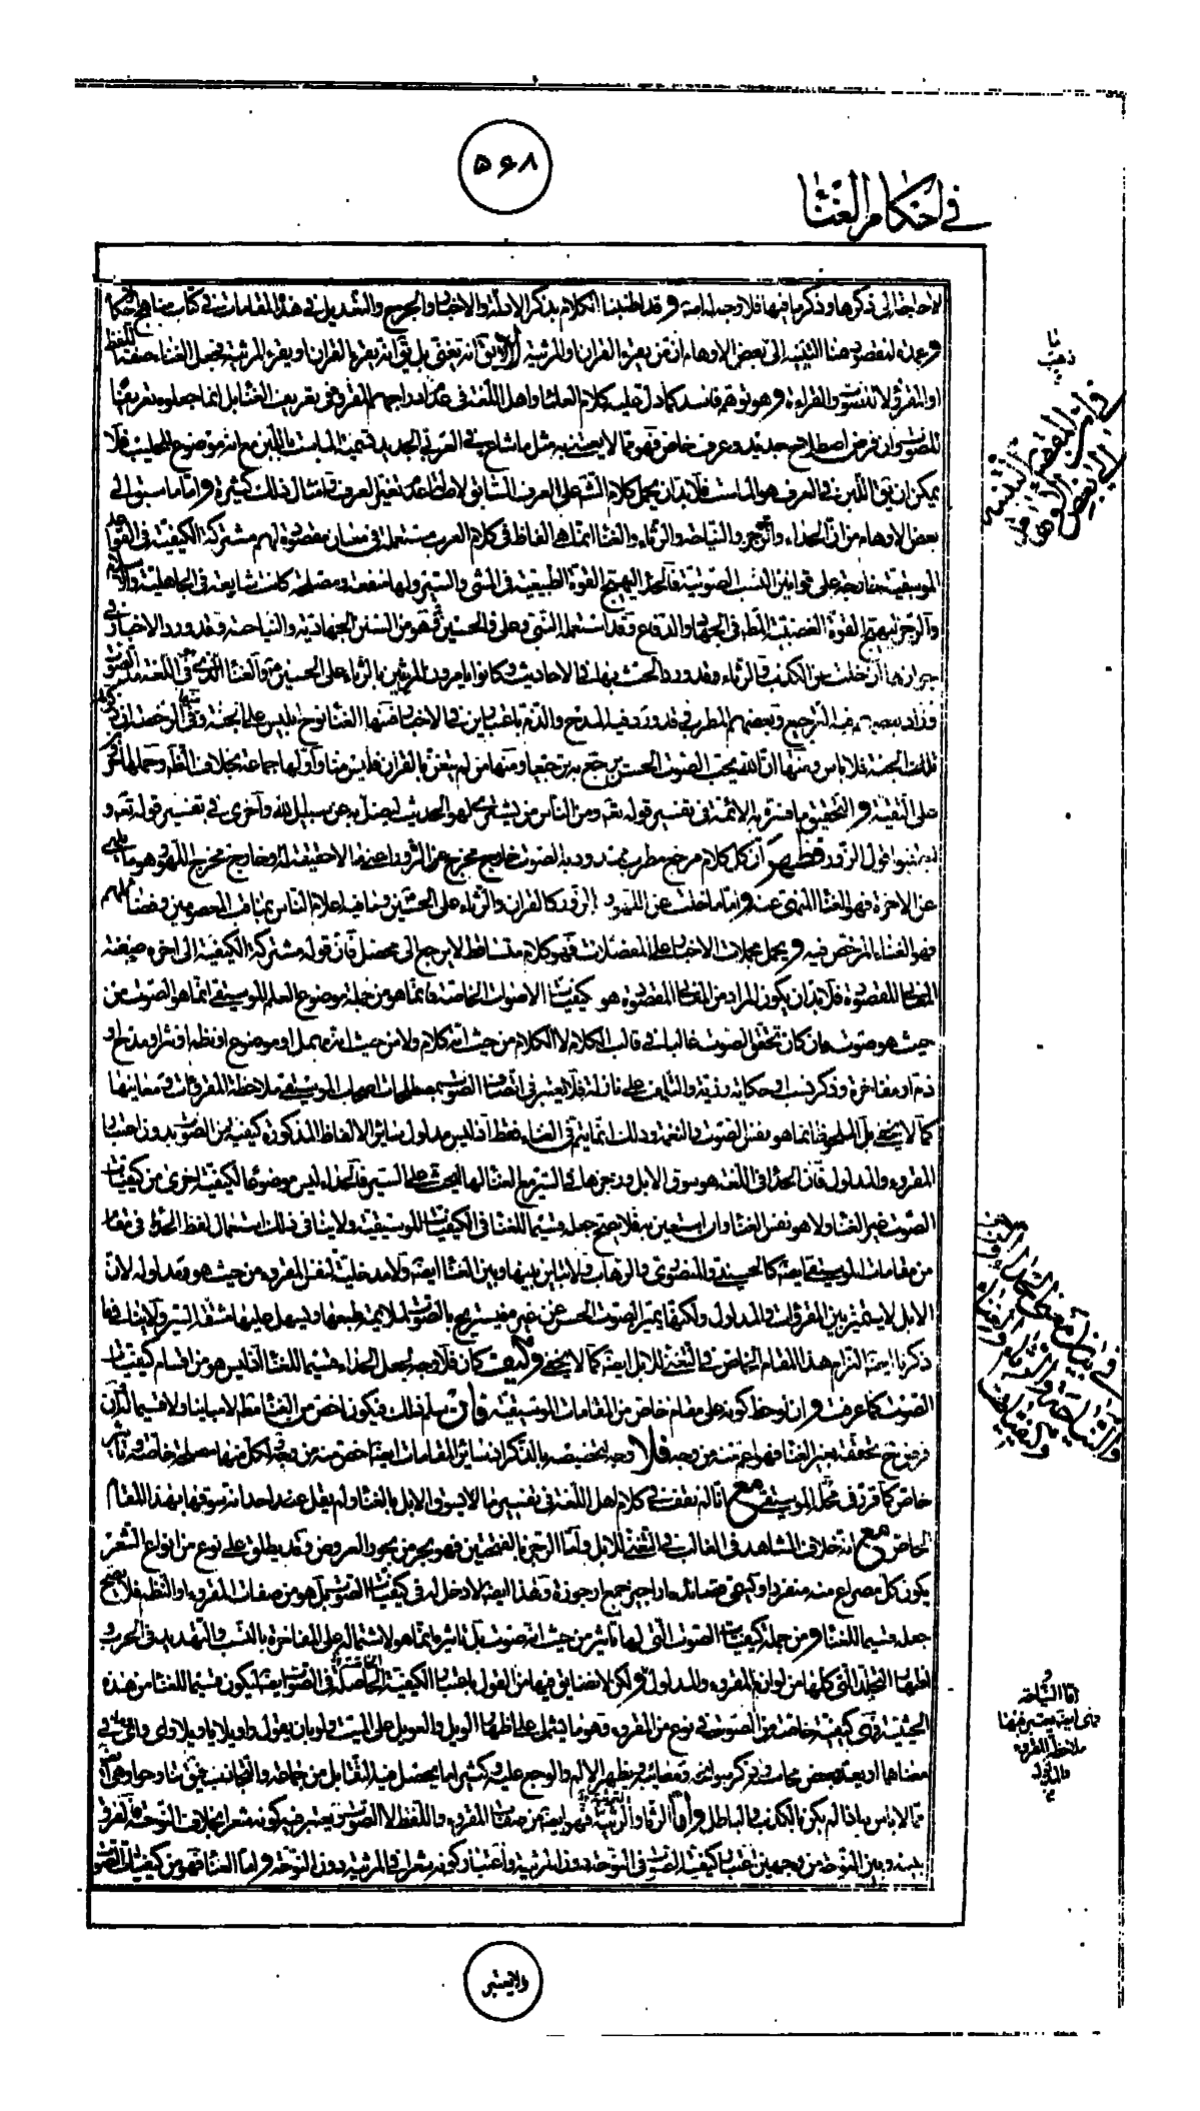 ۵۶۸
في احكام الغنا
لا حاجة الى ذكرها وذكر ما فيها فلا وجه وقد اطنبنا الكلام بذكر الادلة والاخبار والجرح والتعديل في هذه المقامات في كتاب مناهج الاحكام
وعمدة المقصود هنا التنبيه الى بعض الاوهام ان من يقرء القران والمرثية لا يق انه تغنى بل يق انه يقرء القران ويقرء المرثية فجعل الغناء صفة اللفظ
او المقرو لا للصوت والقراءة وهو توهم فاسد كما دل عليه كلام العلماء واهل اللغة في عدم ادراجهم المقرو في تعريف الغنا بل انما جعلوه تعريفا
للصوت وان فرض اصطلاح جديد وعرف خاص فهو مما لا يعتنى به مثل ما شاع في العرف الجديد تسمية الماست باللبن مع انه موضوع للحليب فلا
يمكن ان يق اللبن في العرف هو الماست فلا بد ان يحمل كلام الش على العرف السابق لا طلاعه تغيير العرف في امثال ذلك كثيرة واما ما سبق الى
بعض الاوهام من ان الحداء والرجز والنياحة والرثاء والغنا امثالها الفاظ في كلام العرب مستعملة في معان مقصودة لهم مشتركة الكيفية في القواعد
الموسيقية مندرجة على قوانين النسب الصوتية فالحداء لتهييج القوة الطبيعية في المشي والسير ولها منفعة ومصلحة كانت شايعة في الجاهلية والاسلام
والرجز لتهييج القوة الغضبية في الجهاد والدفاع وقد استعمله النبي وعلي والحسين فهو من السنن الجهادية والنياحة وقد ورد الاخبار في
جوازها اذا خلت عن الكذب والرثاء وقد ورد الحث فيها في الاحاديث وكانوا يامرون المرثين بالرثاء على الحسين والغنا الذي في اللغة مد الصوت
وزاد بعضهم فيه الترجيع وبعضهم المطرب قد ورد فيه المدح والذم باعتبارين في الاخبار فمنها الغنا نوح ابليس على الجنة وفي الرخصة ان ذكرتك
تلك الجنة فلا باس ومنها ان الله يحب الصوت الحسن يرجع به ترجيعا ومنها من لم يتغن بالقران فليس منا واولها جماعة بخلاف الظ وحملها اخر
على التقية والتحقيق ما فسره به الائمة في تفسير قوله تعه ومن الناس من يشتري لهو الحديث ليضل به عن سبيل الله واخرى في تفسير قوله تعه و
اجتنبوا قول الزور فظهر ان كل كلام مرجع مطرب ممدود به الصوت خارج مخرج عن الزور اعنى ما لا حقيقة له وخارج مخرج اللهو وهو ما يلهى
عن الاخرة فهو الغنا المنهى عنه واما ما خلت عن اللهو والزور كالقران والرثاء على الحسين وما فيه اعلام الناس بمناقب المعصومين وفضائلهم
فهو الغناء المرخص فيه ويحمل مجملات الاخبار على المفصلات فهو كلام متساقط لا يرجع الى محصل فان قوله مشتركة الكيفية الى اخره صفة
المعان المقصودة فلا بد ان يكون المراد من المعان المقصودة هو كيفيات الاصوات الخاصة فانما هو من جملة موضوع العلم الموسيقي انما هو الصوت من
حيث هو صوت وان كان تحقق الصوت غالبا في قالب الكلام لا الكلام من حيث انه كلام ولا من حيث انه مهمل او موضوع او نظم او نثر او مدح او
ذم او مفاخرة وذكر نسب وحكاية رزية والتلهف على نازلة فلا يعتبر في اتصاف الصوت بمصطلحات اصحاب الموسيقى ملاحظة المقروات ومعانيها
كما لا يخفى بل الملحوظ انما هو نفس الصوت والنغمة وذلك انما يتم في الغناء فقط اذ ليس مدلول سائر الالفاظ المذكورة كيفية من الصوت بدون اعتبار
المقروء والمدلول فان الحداء في اللغة هو سوق الابل وزجرها في السير مع الغنا لها ليحث على السير فالحداء ليس موضوعا لكيفية اخرى من كيفيات
الصوت غير الغنا ولا هو نفس الغنا وان استعين به فلا يصح جعله قسيما للغنا في الكيفيات الموسيقية ولا ينافي ذلك استعمال لفظ الحداء في مقام
من مقامات الموسيقى ايضا كالحسيني والمنصوري والرهاب ولا تباين بينها وبين الغنا ايضه ولا مدخلية لنفس المقروء من حيث هو وتعد اوله لان
الابل لا يتميز بين المقروات والمدلول ولكنها يتميز الصوت الحسن عن غيره فيستريح بالصوت لملايمته طبعها وليسهل عليها مشقة السير ولا ينافي ما
ذكرنا ايضه التزام هذا المقام الخاص في التغني للابل ايضه كما لا يخفى وكيف كان فلا وجه لجعل الحداء قسيما للغنا اذ ليس هو من اقسام كيفيات
الصوت كما عرفت وان لوحظ كونه على مقام خاص من المقامات الموسيقية فان سلم ذلك فيكون اخص من الغنا مط لا مباينا ولا قسيما له وان
فرض تحققه بغير الغنا فهو اعم منه من وجه فلا وجه لتخصيصه بالذكر اذ سائر المقامات ايضا اخص منه من وجه لكل منها مصلحة خاصة وتاثير
خاص كما قرر في محله الموسيقى مع انا لم نقف في كلام اهل اللغة في تفسيره الا بسوق الابل بالغنا ولم يقل عنه احد انه سوقها بهذا المقام
الخاص مع انه خلاف المشاهد في الغالب في التغني للابل واما الرجز بالفتحتين فهو بحر من بحور العروض وقد يطلق على نوع من انواع الشعر
يكون كل مصراع منه منفردا وتسمى قصائده اراجيز جمع ارجوزة وهذا ايضه لا دخل له في كيفيات الصوت بل هو من صفات المقروء والنظم فلا يصح
جعله قسيما للغنا ومن جملة كيفيات الصوت التي لها تاثير من حيث انه صوت بل تاثيره انما هو لاشتماله على المفاخرة بالنسب والتهديد في الحرب و
اظهار التجلد التي كلها من لوازم المقروء والمدلول ولكن لا نضايق فيها من القول باعتبار الكيفية الحاصلة في الصوت ايضه ليكون قسيما للغنا من هذه
الحيثية فهي كيفية خاصة من الصوت في نوع من المقروء وهو ما يشمل على اظهار الويل والعويل على الميت ولو بان يقول واويلا يا ويلا واى واى وما في
معناهما او يعد بعض محامده ويذكر موته ومصائبه ويظهر الالم والوجع عليه وكثيرا ما يحصل فيه التقابل من جماعة والتجانب فيق تناوحوا وهى
مما لا باس به اذا لم يكن بالكذب والباطل واما الرثاء والمرثية فهو ايضه من صفات المقروء واللفظ لا الصوت ويعتبر فيه كونه شعرا بخلاف النوحة فالفرق
بينه وبين النوحة من وجهين اعتبار كيفية الصوت في النوحة دون المرثية واعتبار كونه شعرا في المرثية دون النوحة واما الغنا فهو من كيفيات الصوت
في ان المقصود التنبيه الى بعض الاوهام
في بيان معنى الحداء والرجز والنياحة والرثاء والغناء
اما النياحة
فهي ايضه يعتبر فيها
ملاحظة المقروء
والمدلول
ولا يعتبر